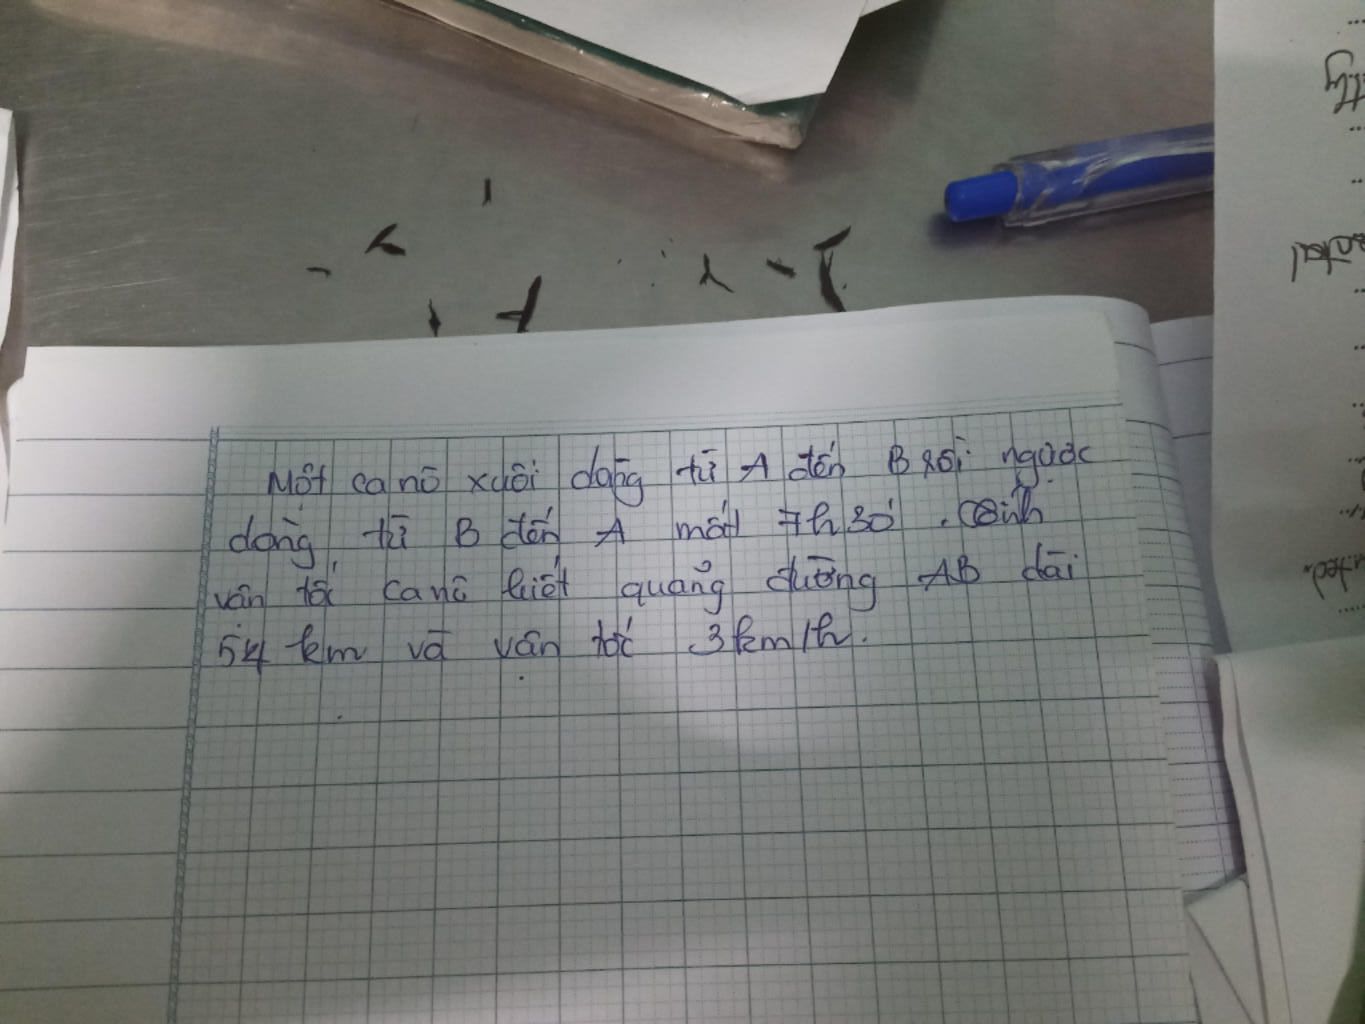 Một ca nô xuôi dòng từ A đến B rồi ngược
dòng từ B đến A mất 7h30'. Tính
vận tốc ca nô biết quảng đường AB dài
54 km và vận tốc 3km/h.